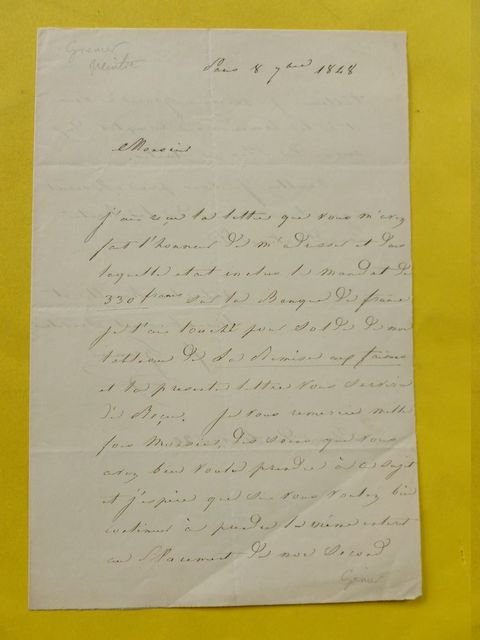 Grenier
peintre
Paris 8 7bre 1848
Monsieur
j'ai reçu la lettre que vous m'avez
fait l'honneur de m'adresser et dans
laquelle etait inclus le mandat de
330 francs sur la Banque de france
je l'ai touché pour solde de mon
tableau de La Remise aux faisans
et la presente lettre vous servira
de Reçu. Je vous remercie mille
fois Monsieur, des soins que vous
avez bien voulu prendre à ce sujet
et j'espère que vous voulez bien
continuer à prendre le même interet
au placement de mon second
Grenier